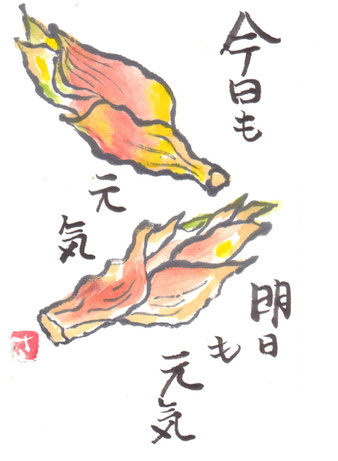 今日も
元気
明日も
元気